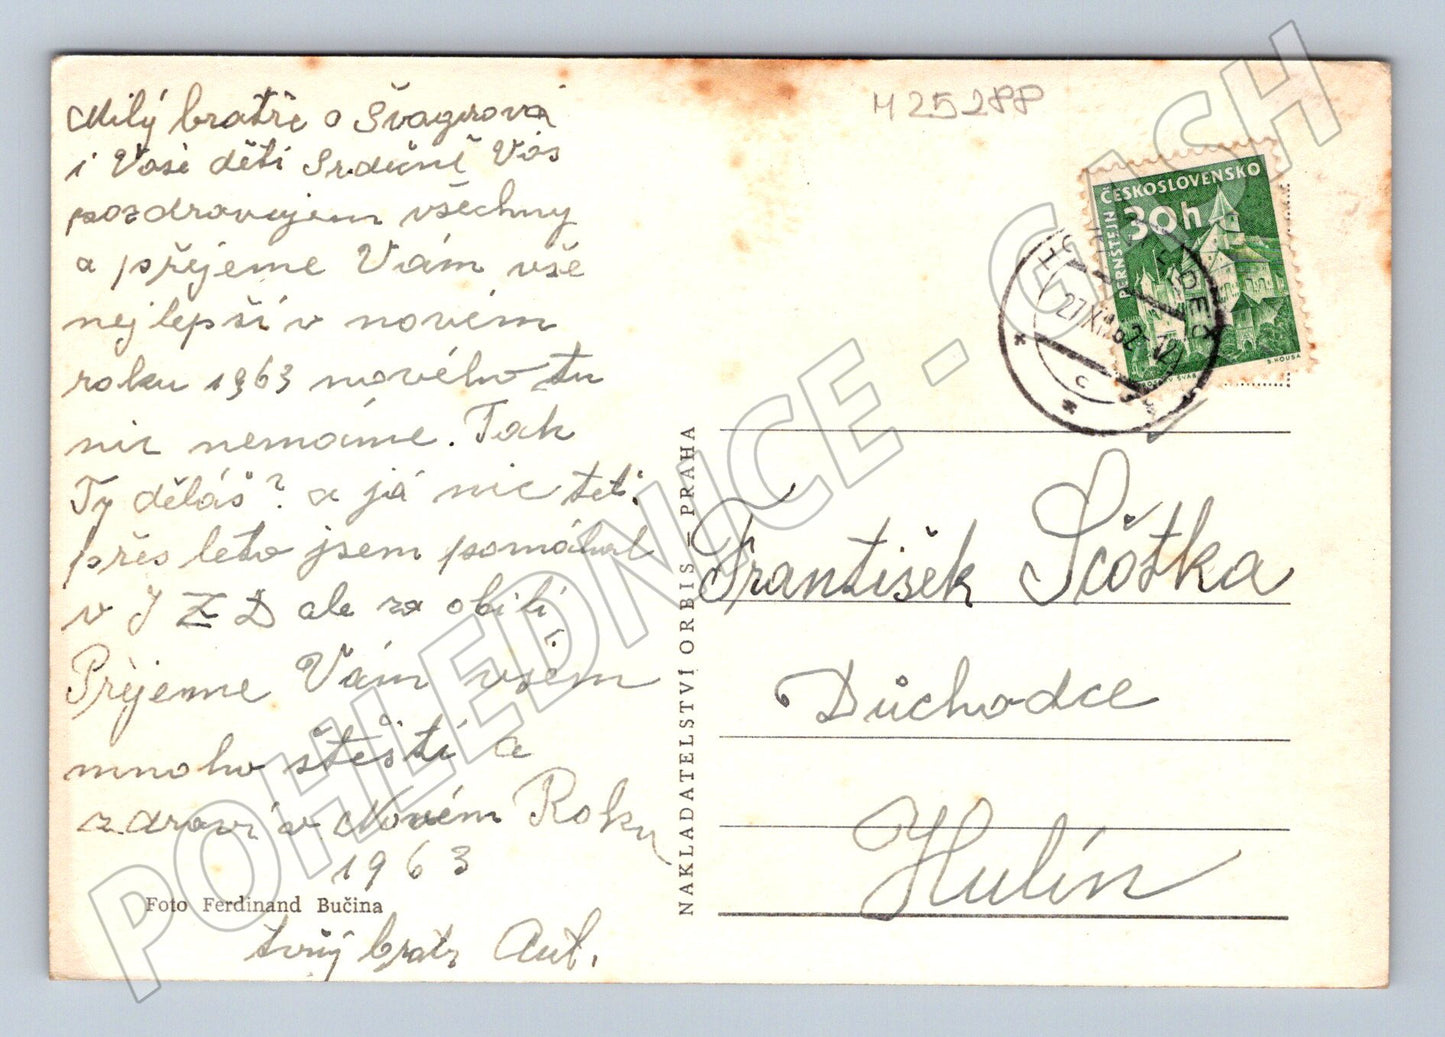 Milý bratře a Švagrová
i Vaše děti Srdečně Vás
pozdravujem všechny
a přějeme Vám vše
nejlepší v novém
roku 1963 nového tu
nic nemáme. Tak
Ty děláš? a já nic teť.
přes leto jsem pomáhal
v JZD ale za obilí
Přejeme Vám všem
mnoho štěstí a
zdraví v Novém Roku
1963
Foto Ferdinand Bučina
tvůj bratr Ant.
NAKLADATELSTVÍ ORBIS – PRAHA
M 25288
ČESKOSLOVENSKO
30h
PERNŠTEJN
27.XII.62-
C
František Sčötka
Důchodce
Hulín
POHLEDNICE - GASH